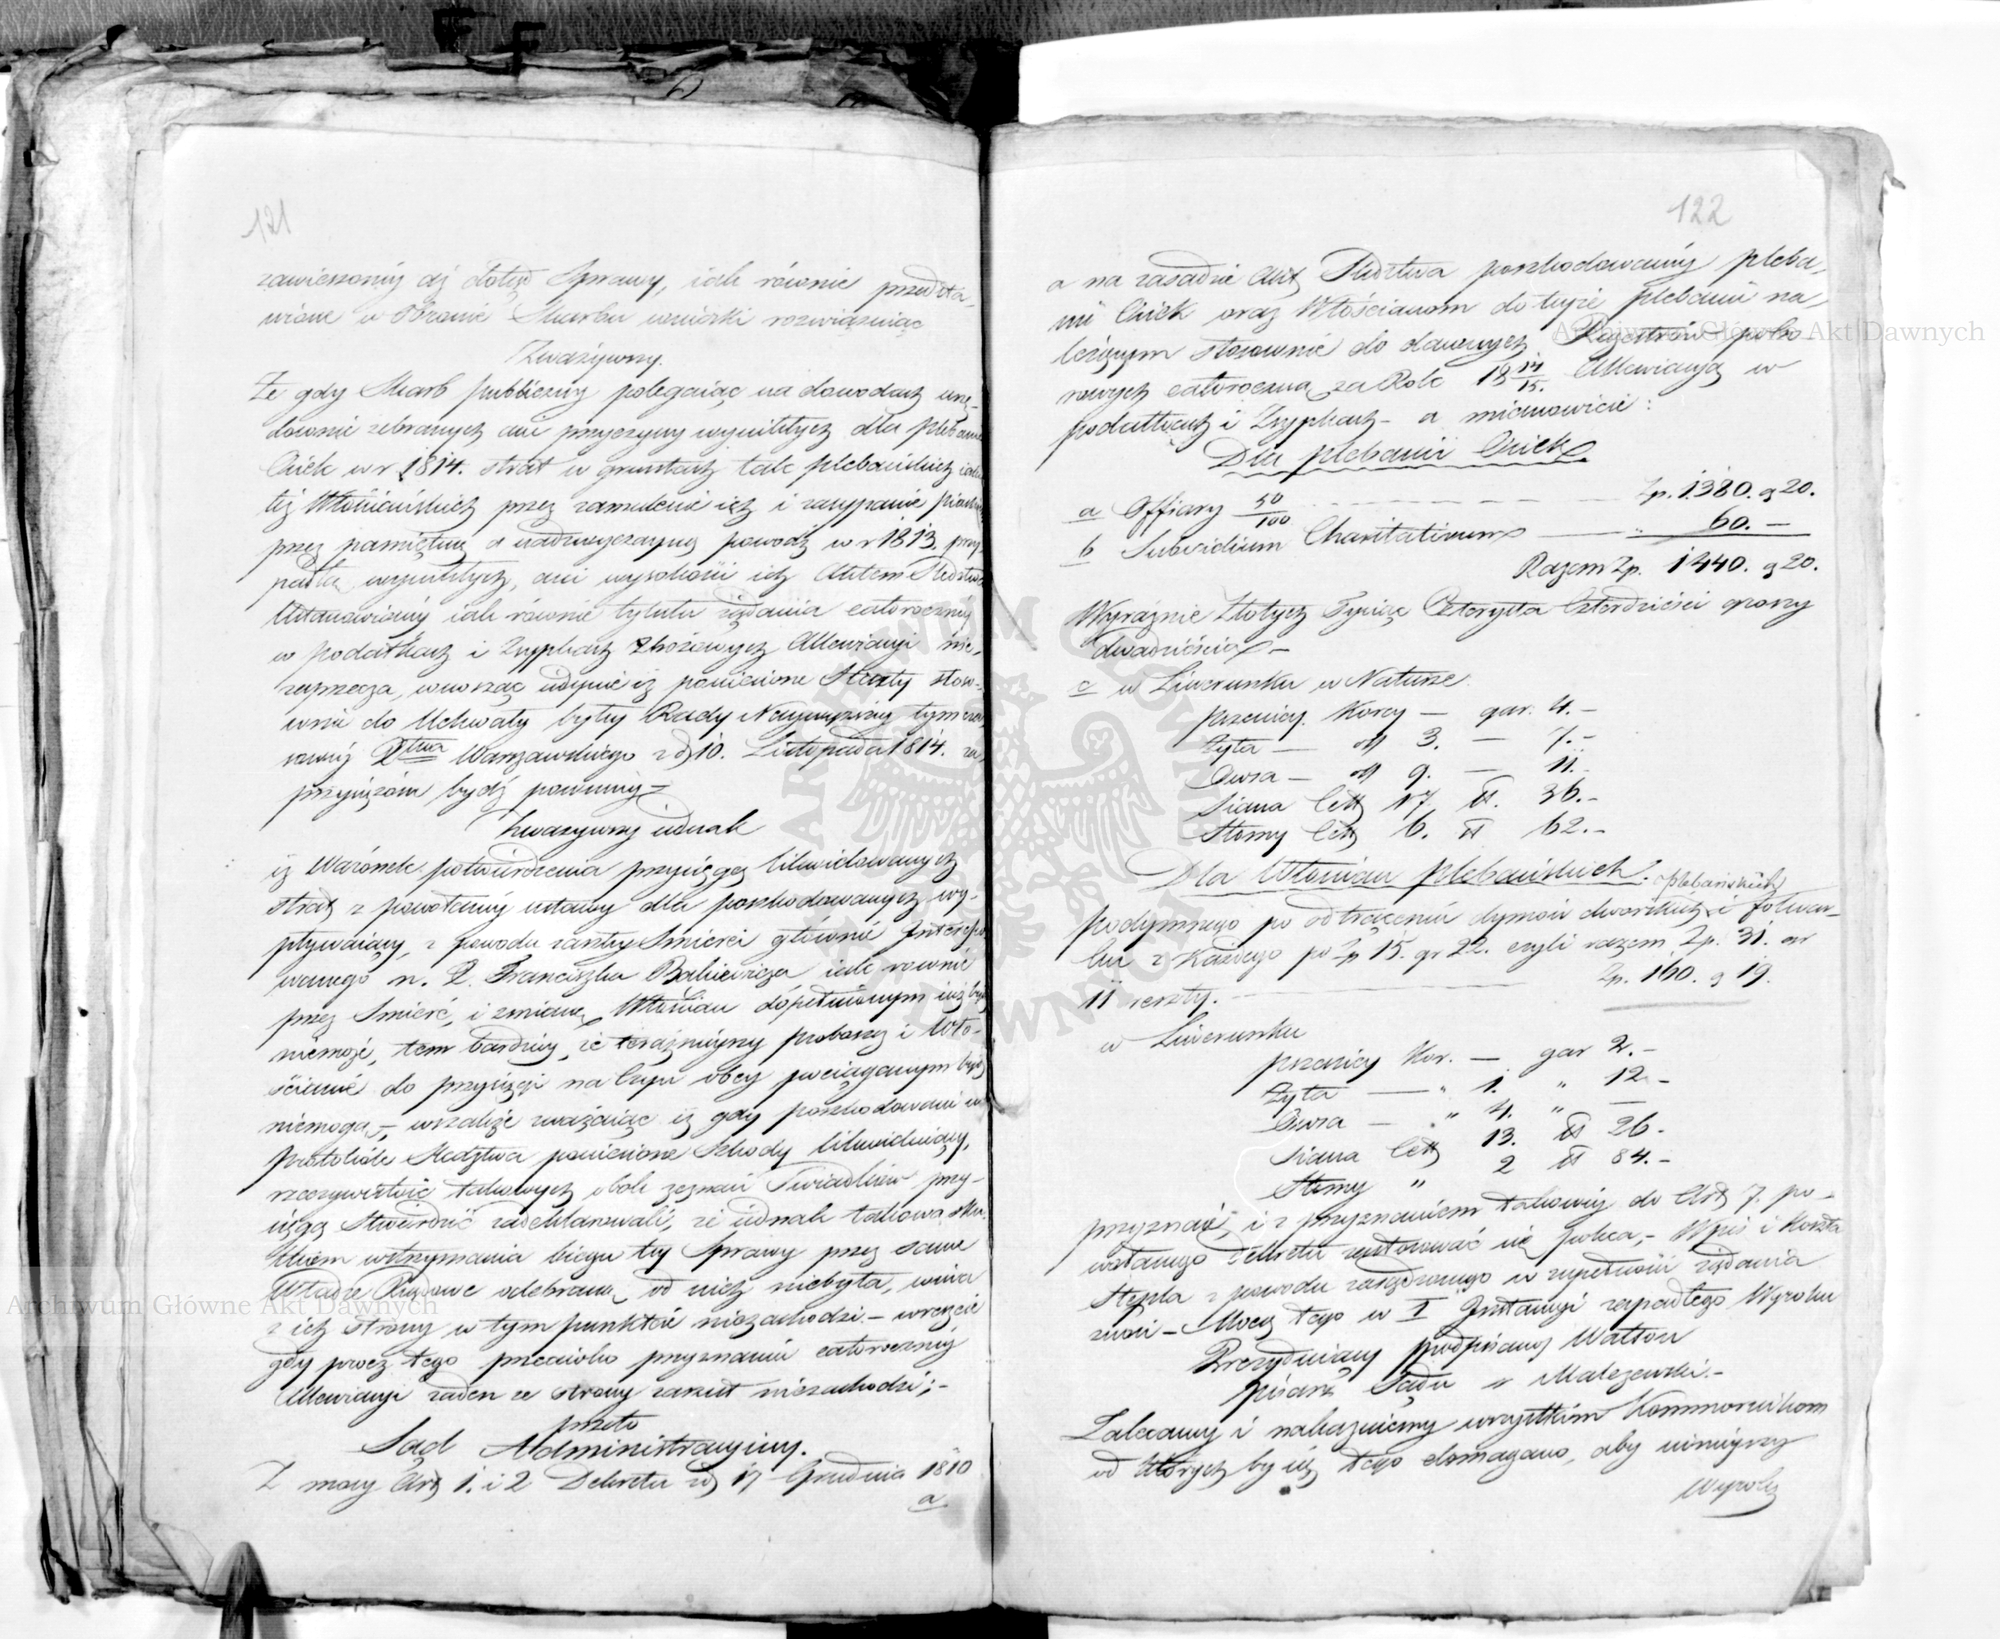 121
zawieszoniey aż dotąd Sprawy, iak również przedsta-
wione w Obronie Skarbu wnioski rozwiązuiąc
Zważywszy.
Że gdy Skarb publiczny polegaiąc na dowodach urzę-
downie zebranych ani przyczyny wynikłych dla plebanii
w r. 1814. strat w gruntach tak plebańskich iako
też Włościańskich przez zamulenie ich i zasypanie piaskiem
przez pamiętną a nadzwyczayną powodź w r 1813. przy-
padłą wynikłych, ani wysokości ich Aktem Śledztwa
Ustanowioney iak również tytułu żądania całoroczney
w podatkach i Zsypkach Zbożowych Allewiacyi nie-
zaprzecza, wnosząc iedynie iż poniesione Straty stoso-
wnie do Uchwały byłey Rady Naywyższey tymczaso-
wey Xtwa Warszawskiego z d 10. Listopada 1814. za-
przysiężone bydź powinny
Zważywszy iednak
iż Warunek potwierdzenia przysięgą likwidowanych
strat z powołaney ustawy dla poszkodowanych wy-
pływaiący, z powodu zaszłey Śmierci głównie Interesso-
wanego n. X. Franciszka iak rownie
przez Śmierć, i zmianę Włościan dopełnionym iuż bydź
niemoże, tem bardziey, że teraźnieyszy proboszcz i Wło-
ścianie do przysięgi na Czyn obcy pociąganym bydź
niemogą, – wszakże zważaiąc iż gdy poszkodowani w
protokóle Śledztwa poniesione Szkody likwiduiący,
rzeczywistość takowych obok zeznań Świadków przy-
sięgą Stwierdzić zadeklarowali, że iednak takowa sku-
tkiem wstrzymania biegu tey Sprawy przez same
Władze Rządowe odebrana od nich niebyła, wina
z ich strony w tym punkcie niezachodzi – wreszcie
gdy procz tego przeciwko przyznaniu całoroczney
Allewiacyi żaden ze strony zarzut niezachodzi; –
przeto
Sąd Administracyiny.
Z mocy Art 1. i 2 Dekretu z d 17 Grudnia 1810
a
122
a na zasadzie Akt Śledztwa poszkodowaney pleba-
nii oraz Włościanom do teyże plebanii na-
leżącym stosownie do dawnych Rejestrów pobo-
rowych całoroczną za Rok 18 14/15. Allewiacyą w
podatkach i Zsypkach – a mianowicie:
Dla plebanii
a Offiary 50/100 Zp. 1380. g 20.
b Subsidium Charitativum „ 60. –
Razem Zp. 1440. g 20.
Wyraźnie Złotych Tysiąc Czterysta Czterdzieści groszy
dwadzieścia –
c w Liwerunku w Naturze
pszenicy Korcy – gar. 4. –
Żyta — „ 3. — 7. –
Owsa — „ 9. — 11. –
Siana Cett 17. ℔. 36. –
Słomy Cett 6. ℔ 62. –
Dla Włościan plebańskich.
plebańskich
podymnego po odtrąceniu dymów dworskich i folwar-
ku z Każdego po Zp 15. gr 22. czyli razem Zp. 31. gr
11 reszty. Zp. 160. g 19.
w Liwerunku
pszenicy Kor. — gar 2. –
Żyta — „ 1. „ 12 –
Owsa — „ 4. „ —
Siana Cett 13. ℔ 26. –
Słomy „ 2 ℔ 84. –
przyznaie, i z przyznaniem takowey do Art 7. po-
wołanego Dekretu zastosować się poleca, – Wpis i Koszta
Stępla z powodu zasądzonego w zupełności żądania
znosi – Mocą tego w I Instancyi zapadłego Wyroku
Prezyduiący podpisano Watson
pisarz Sądu Malczewski. –
Zalecamy i nakazuiemy wszystkim Kommornikom
od których by się tego domagano, aby ninieyszy
Wyrok
Archiwum Główne Akt Dawnych
Archiwum Główne Akt Dawnych
Archiwum Główne Akt Dawnych